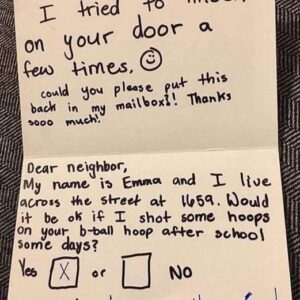 I tried to
on your door a
few times. ☺
could you please put this
back in my mailbox?! Thanks
sooo much!
Dear neighbor,
My name is Emma and I live
across the street at 1659. Would
it be ok if I shot some hoops
on your b-ball hoop after school
some days?
Yes [X] or [ ] NO